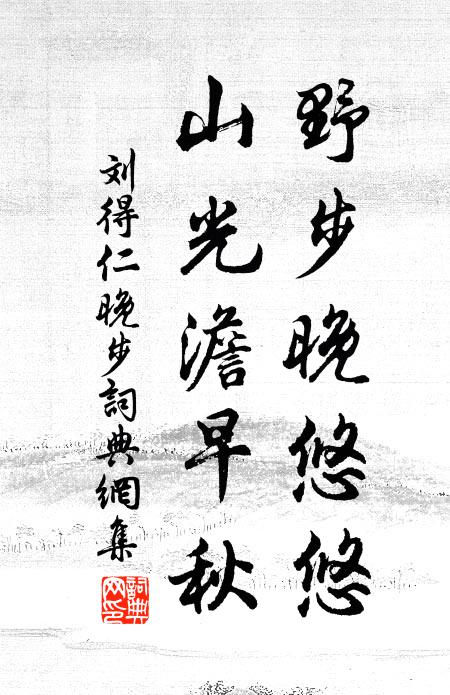 野步晚悠悠
山光澹早秋
刘得仁晚步詞典網集
詞典网印